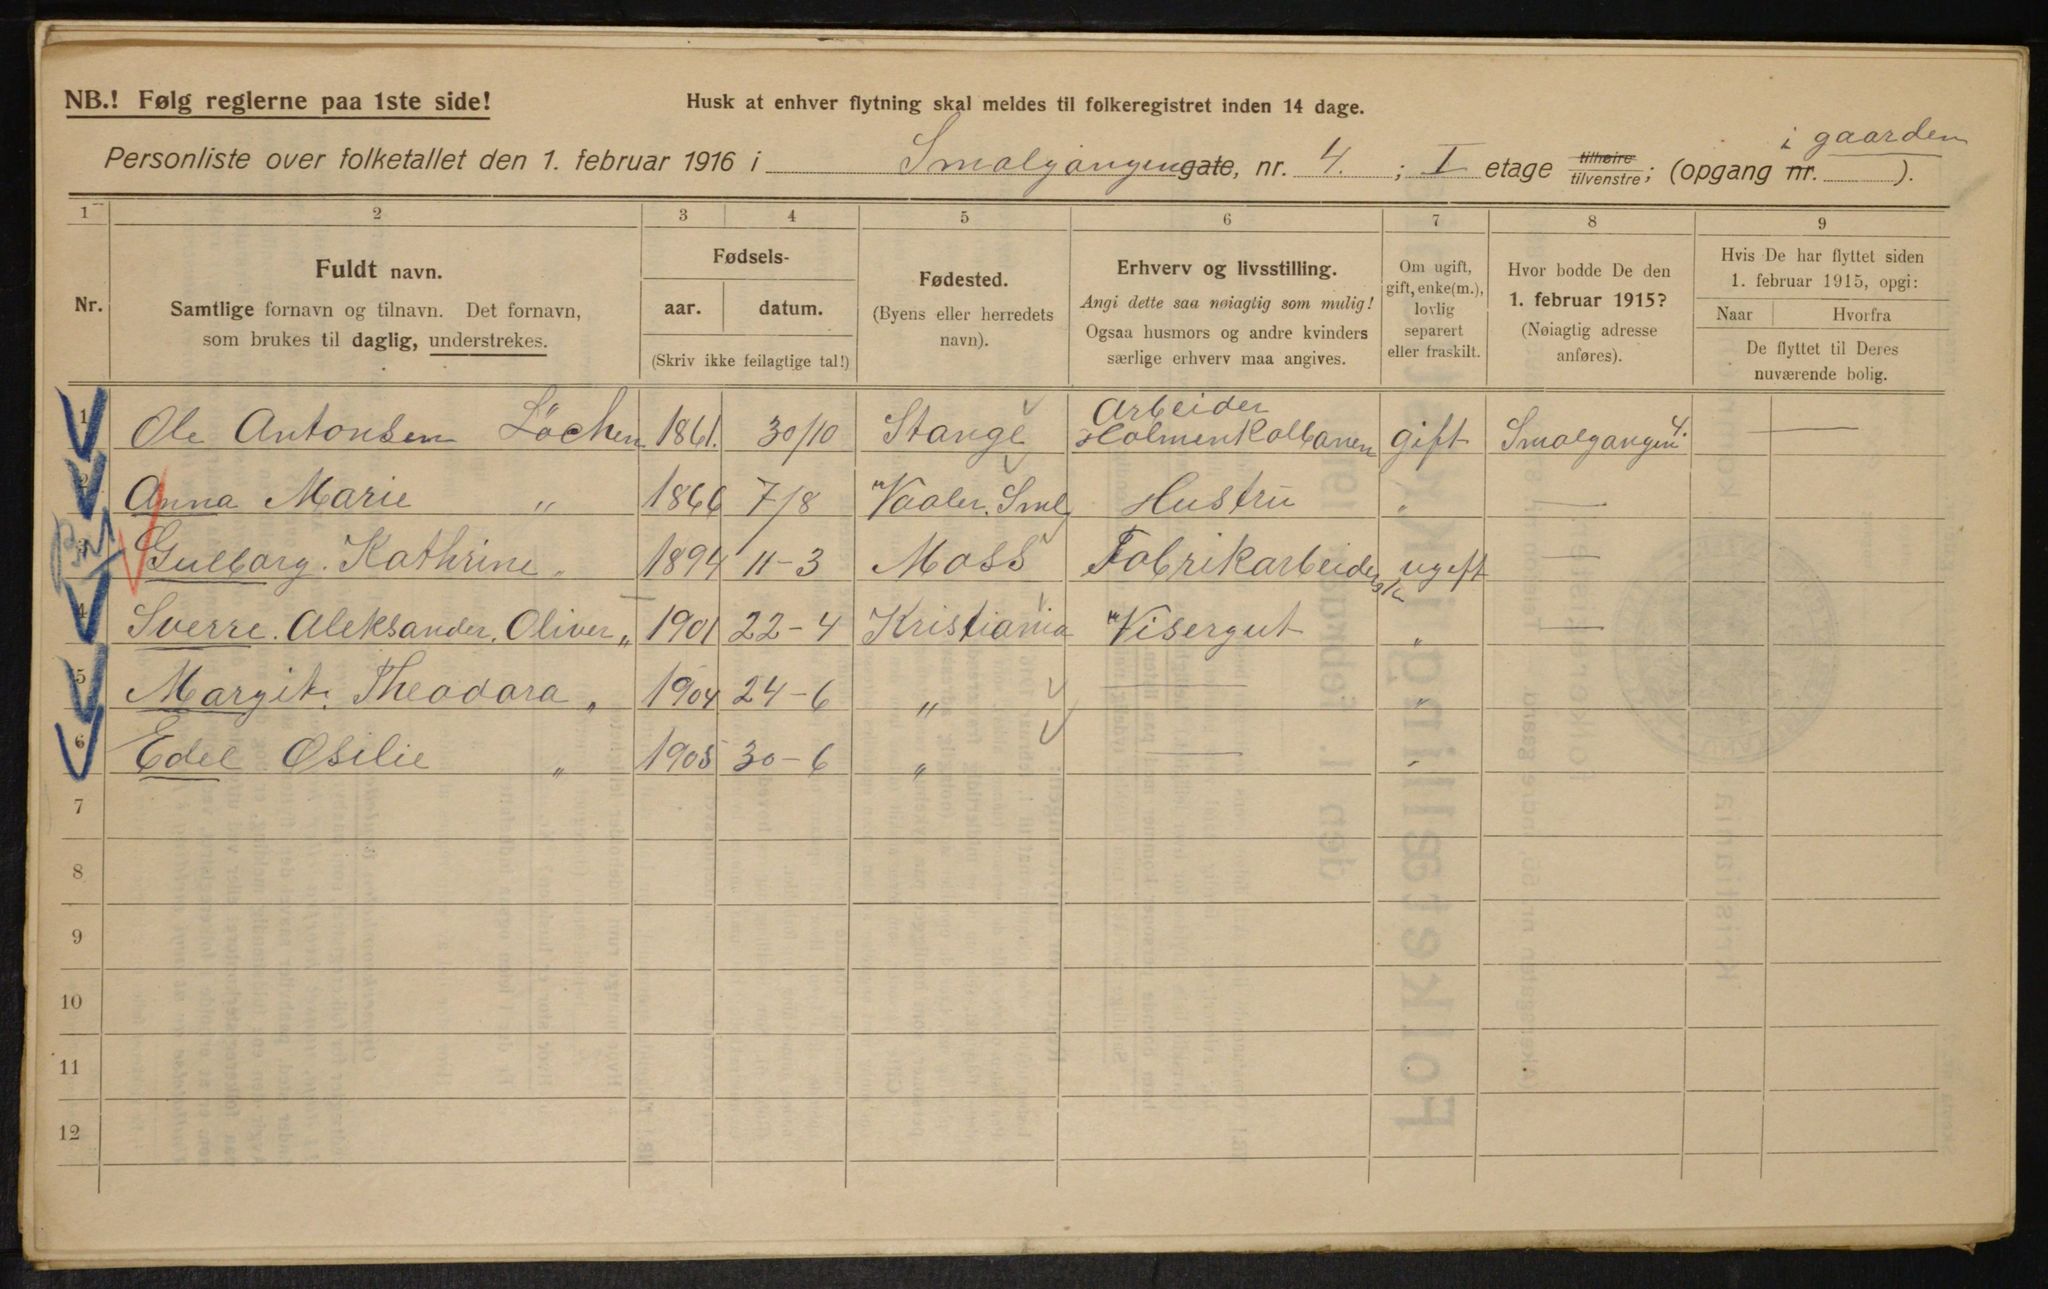 NB.! Følg reglerne paa 1ste side!
Husk at enhver flytning skal meldes til folkeregistret inden 14 dage.
Personliste over folketallet den 1. februar 1916 i Smalgangengate, nr. 4. ; I etage tilhøire tilvenstre; (opgang nr. i gaarden ).
1 2 3 4 5 6 7 8 9
Nr.
Fuldt navn.
Samtlige fornavn og tilnavn. Det fornavn,
som brukes til daglig, understrekes.
Fødsels-
aar. datum.
(Skriv ikke feilagtige tal!)
Fødested.
(Byens eller herredets
navn).
Erhverv og livsstilling.
Angi dette saa nøiagtig som mulig!
Ogsaa husmors og andre kvinders
særlige erhverv maa angives.
Om ugift,
gift, enke(m.),
lovlig
separert
eller fraskilt.
Hvor bodde De den
1. februar 1915?
(Nøiagtig adresse
anføres).
Hvis De har flyttet siden
1. februar 1915, opgi:
Naar Hvorfra
De flyttet til Deres
nuværende bolig.
1 Ole Antonsen Löchen 1861. 30/10 Stange Arbeider Holmenkolbanen gift Smalgangen 4. —
2 Anna Marie " 1866 7/8 Vaaler. Sml. Hustru " —
3 Gulborg. Kathrine " 1894 11-3 Moss Fabrikarbeiderske ugift —
4 Sverre. Aleksander. Oliver " 1901 22-4 Kristiania Visergut " —
5 Margit. Theodora " 1904 24-6 " — "
6 Edel Osilie " 1905 30-6 " — "
7
8
9
10
11
12